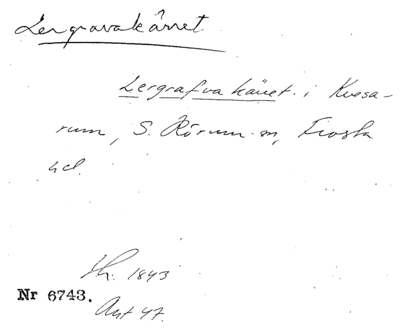 Lergravakärret
Lergrafva käret i Kvesa-
rum, S. Rörum sn, Frosta
hd.
1843
Nr 6743.
Ant 47.